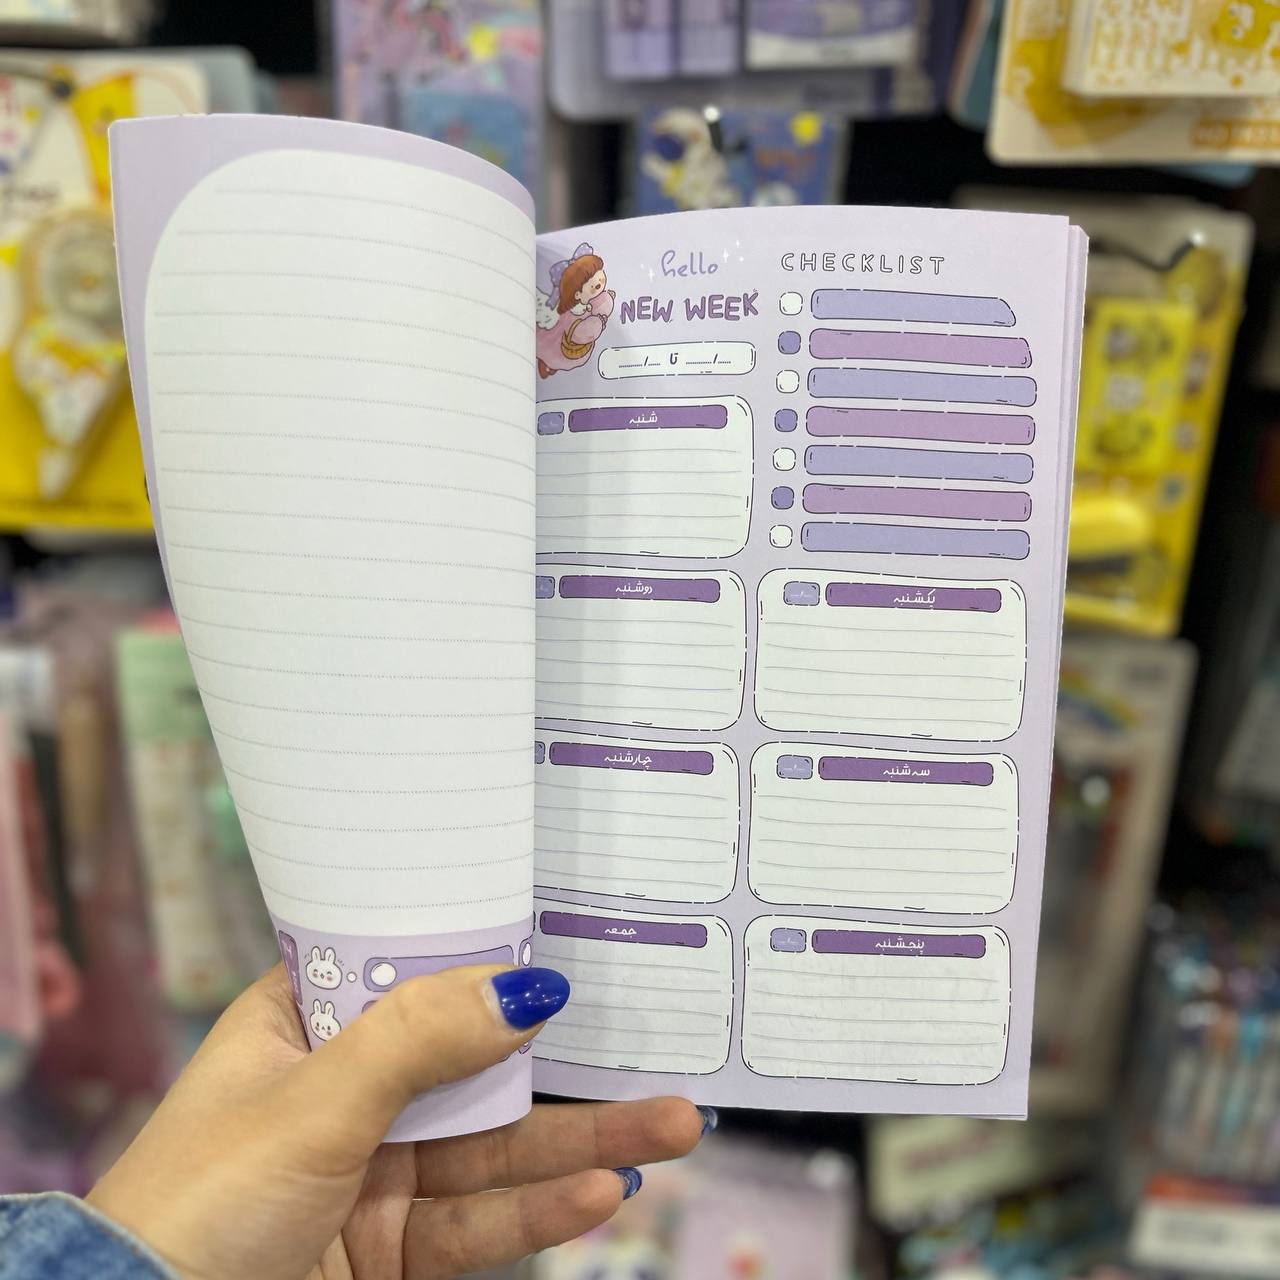 hello
NEW WEEK
CHECKLIST
....../...... تا ....../......
شنبه
یکشنبه
دوشنبه
سه شنبه
چهارشنبه
پنجشنبه
جمعه